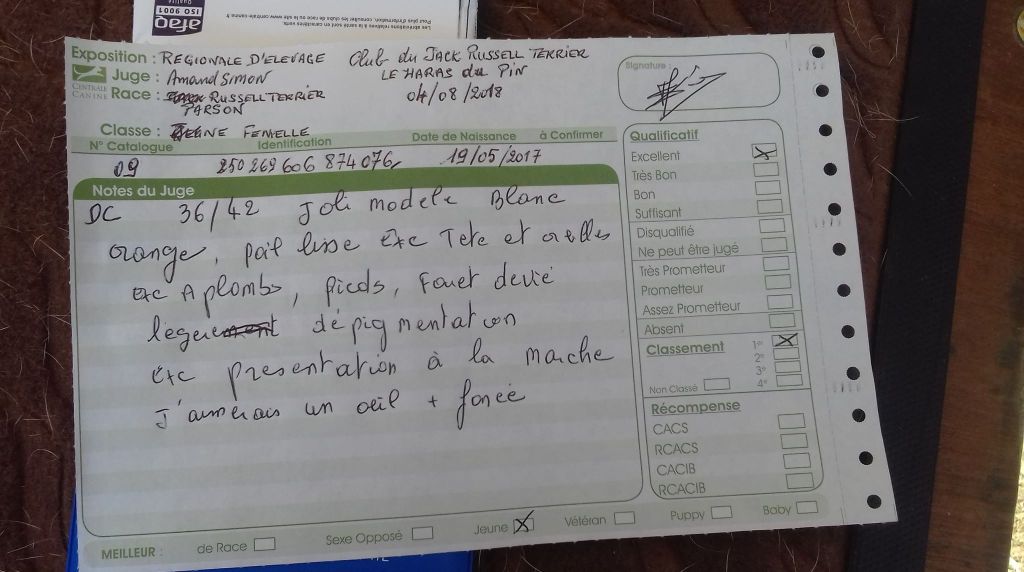 afaq
ISO 9001
Qualité
Exposition : REGIONALE D'ELEVAGE Club du JACK RUSSELL TERRIER
Juge : Amand SIMON LE HARAS du PIN
CENTRALE CANINE
Race : RUSSELL TERRIER 04/08/2018
PARSON
Classe : JEUNE FEMELLE
N° Catalogue Identification Date de Naissance à Confirmer
09 250 269 606 874 076 19/05/2017
Notes du Juge
DC 36/42 Joli modele Blanc
orange, poil lisse Exc Tete et oreilles
Exc Aplombs, pieds, Fouet devié
leger dépigmentation
Exc presentation à la marche
J'aimerais un oeil + foncé
Signature :
Qualificatif
Excellent X
Très Bon
Bon
Suffisant
Disqualifié
Ne peut être jugé
Très Prometteur
Prometteur
Assez Prometteur
Absent
Classement 1er X
2e
3e
Non Classé 4e
Récompense
CACS
RCACS
CACIB
RCACIB
MEILLEUR : de Race Sexe Opposé Jeune X Vétéran Puppy Baby